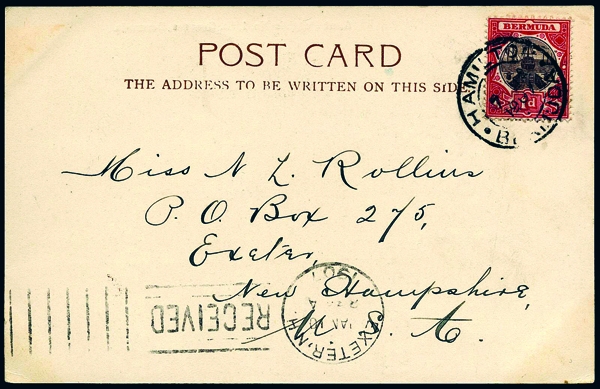 BERMUDA
1d
HAMILTON BERMUDA
POST CARD
THE ADDRESS TO BE WRITTEN ON THIS SIDE
Miss N L Rollins
P. O. Box 275,
Exeter,
New Hampshire,
U. S. A.
RECEIVED
EXETER, N.H.
JAN
1907